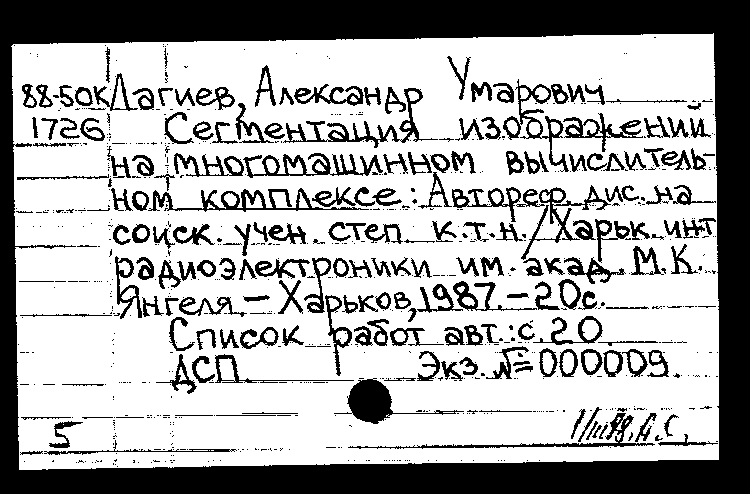 88-50К Лагиев, Александр Умарович
1726 Сегментация изображений
на многомашинном вычислитель-
ном комплексе: Автореф. дис. на
соиск. учен. степ. к.т.н./Харьк. инт
радиоэлектроники им. акад. М.К.
Янгеля. – Харьков, 1987. – 20с.
Список работ авт.: с. 20.
ДСП. Экз. № 000009.
5 1/III 88. А.С.